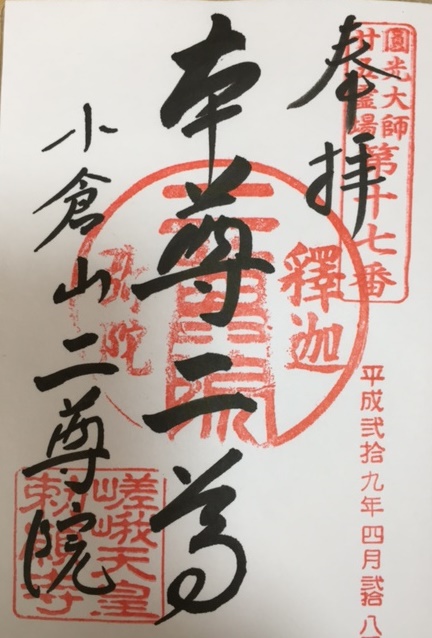 圓光大師
廿五霊場
第十七番
奉拝
平成弐拾九年四月弐拾八
釋迦
本尊二尊
小倉山二尊院
嵯峨天皇
勅願寺